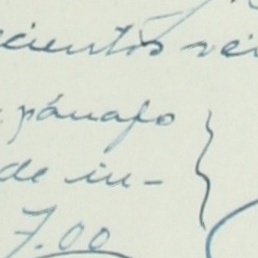 cientos vei
párrafo
de in-
7.00